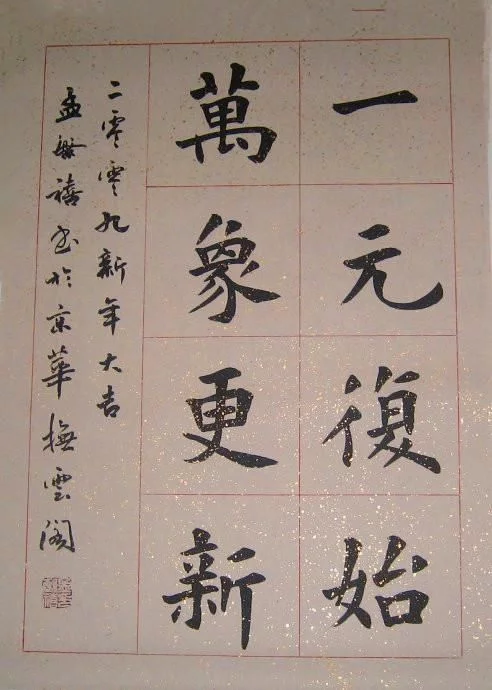 一元復始
萬象更新
二零零九新年大吉
孟繁禧书於京華撫雲阁